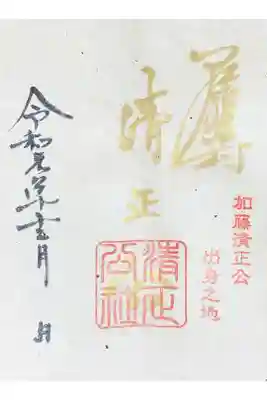 加藤清正公
出身之地
清正
清正公社
令和元年
月 日